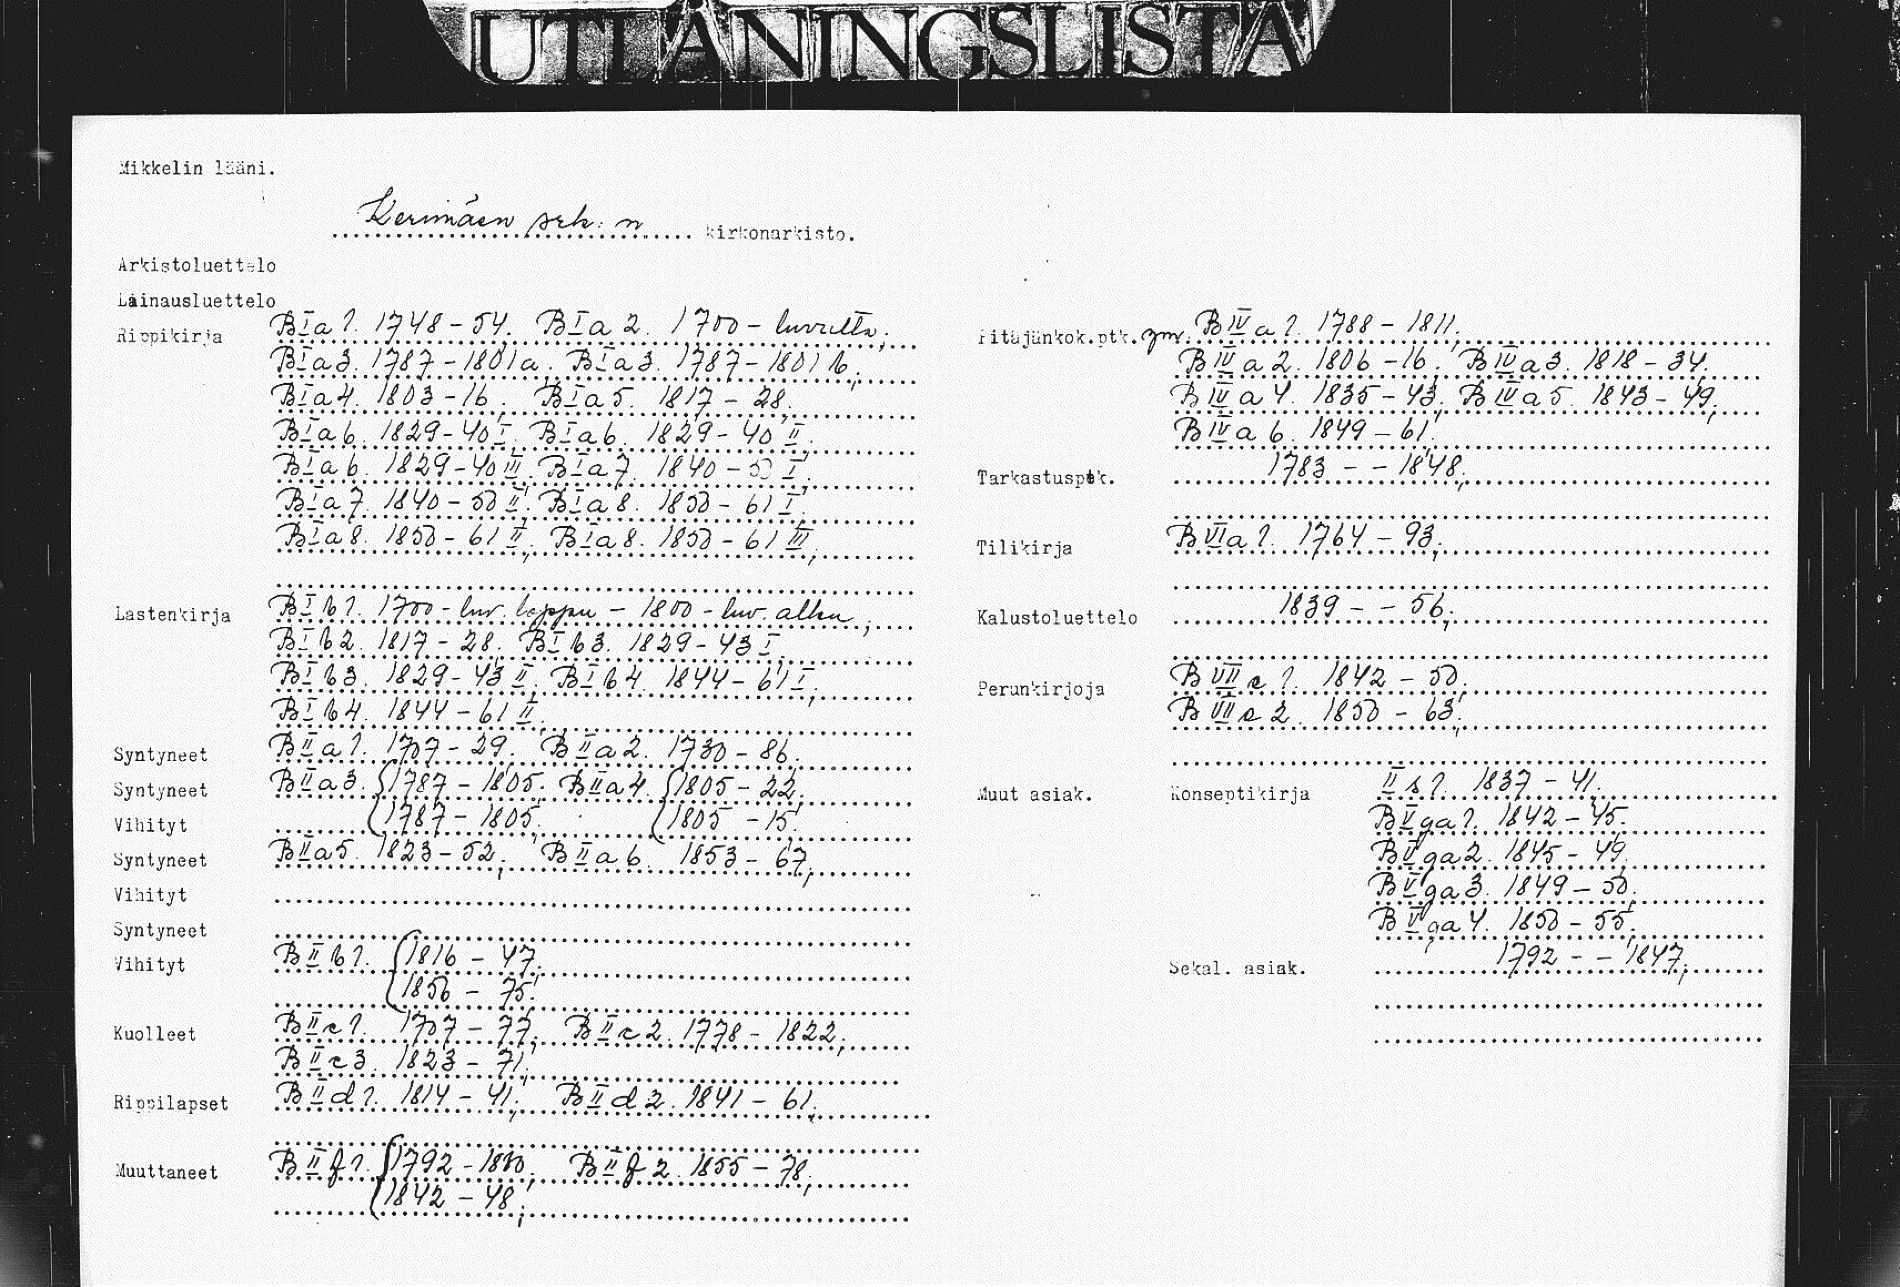 UTLÅNINGSLISTA
Mikkelin lääni.
Kerimäen srk:n kirkonarkisto.
Arkistoluettelo
Lainausluettelo
Rippikirja BIa1. 1748-54. BIa2. 1700-luvulta;
BIa3. 1787-1801a. BIa3. 1787-1801b;
BIa4. 1803-16. BIa5. 1817-28.
BIa6. 1829-40 I. BIa6. 1829-40 II;
BIa6. 1829-40 III. BIa7. 1840-50 I;
BIa7. 1840-50 II. BIa8. 1850-61 I.
BIa8. 1850-61 II; BIa8. 1850-61 III;
Lastenkirja BIb1. 1700-luv. loppu - 1800-luv. alku;
BIb2. 1817-28. BIb3. 1829-43 I.
BIb3. 1829-43 II. BIb4. 1844-61 I;
BIb4. 1844-61 II.
Syntyneet BIIa1. 1707-29. BIIa2. 1730-86.
Syntyneet BIIa3. 1787-1805. BIIa4. 1805-22.
Vihityt 1787-1805. 1805-15.
Syntyneet BIIa5. 1823-52; BIIa6. 1853-67;
Vihityt
Syntyneet
Vihityt BIIb1. 1816-47;
1856-75.
Kuolleet BIIc1. 1707-77; BIIc2. 1778-1822;
BIIc3. 1823-71.
Rippilapset BIId1. 1814-41; BIId2. 1841-61;
Muuttaneet BIIf1. 1792-1800; BIIf2. 1855-78;
1842-48;
Pitäjänkok.ptk. ym. BIVa1. 1788-1811.
BIVa2. 1806-16. BIVa3. 1818-34.
BIVa4. 1835-43. BIVa5. 1843-49;
BIVa6. 1849-61.
Tarkastusptk. 1783--1848;
Tilikirja BVIa1. 1764-93;
Kalustoluettelo 1839--56;
Perunkirjoja BVIIc1. 1842-50.
BVIIc2. 1850-63;
Muut asiak. Konseptikirja IIs1. 1837-41.
BVga1. 1842-45.
BVga2. 1845-49.
BVga3. 1849-50.
BVga4. 1850-55.
Sekal. asiak. 1792--1847;